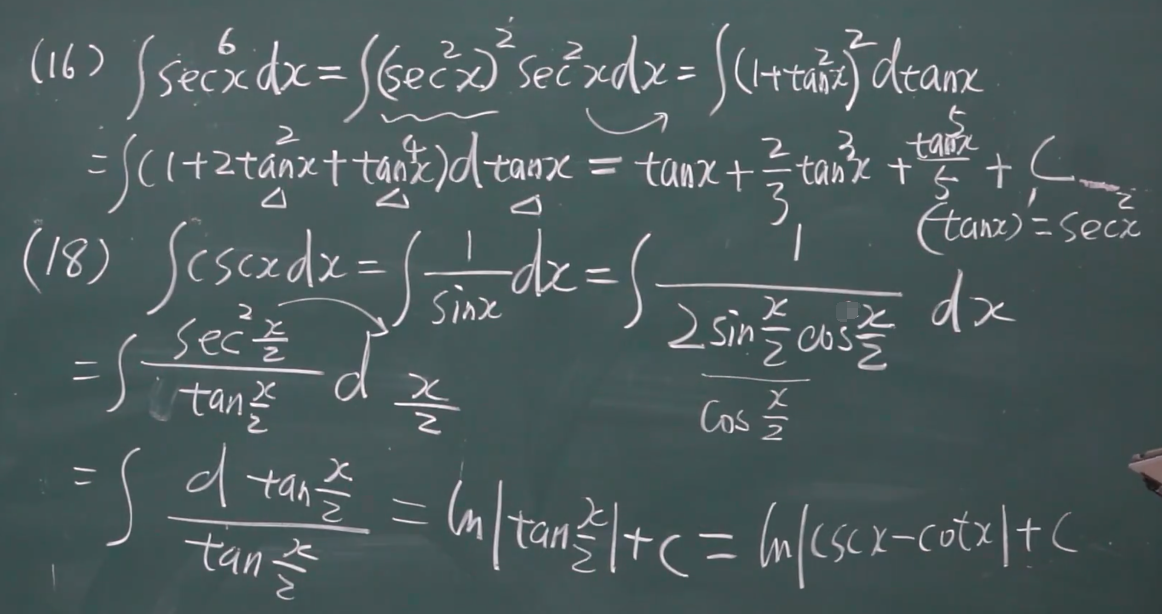 (16) ∫sec⁶x dx = ∫(sec²x)² sec²x dx = ∫(1+tan²x)² dtanx
= ∫(1+2tan²x+tan⁴x)d tanx = tanx + 2/3 tan³x + tan⁵x/5 + C
(tanx)' = sec²x
(18) ∫cscx dx = ∫ 1/sinx dx = ∫ 1/(2sin x/2 cos x/2) dx
cos x/2
= ∫ (sec² x/2)/(tan x/2) d x/2
= ∫ (d tan x/2)/(tan x/2) = ln|tan x/2|+C = ln|cscx-cotx|+C